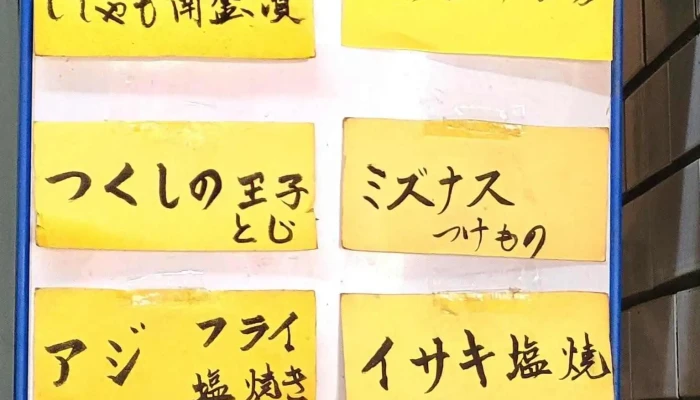 ししゃも南蛮漬
つくしの王子
とじ
ミズナス
つけもの
アジ フライ
塩焼き
イサキ塩焼